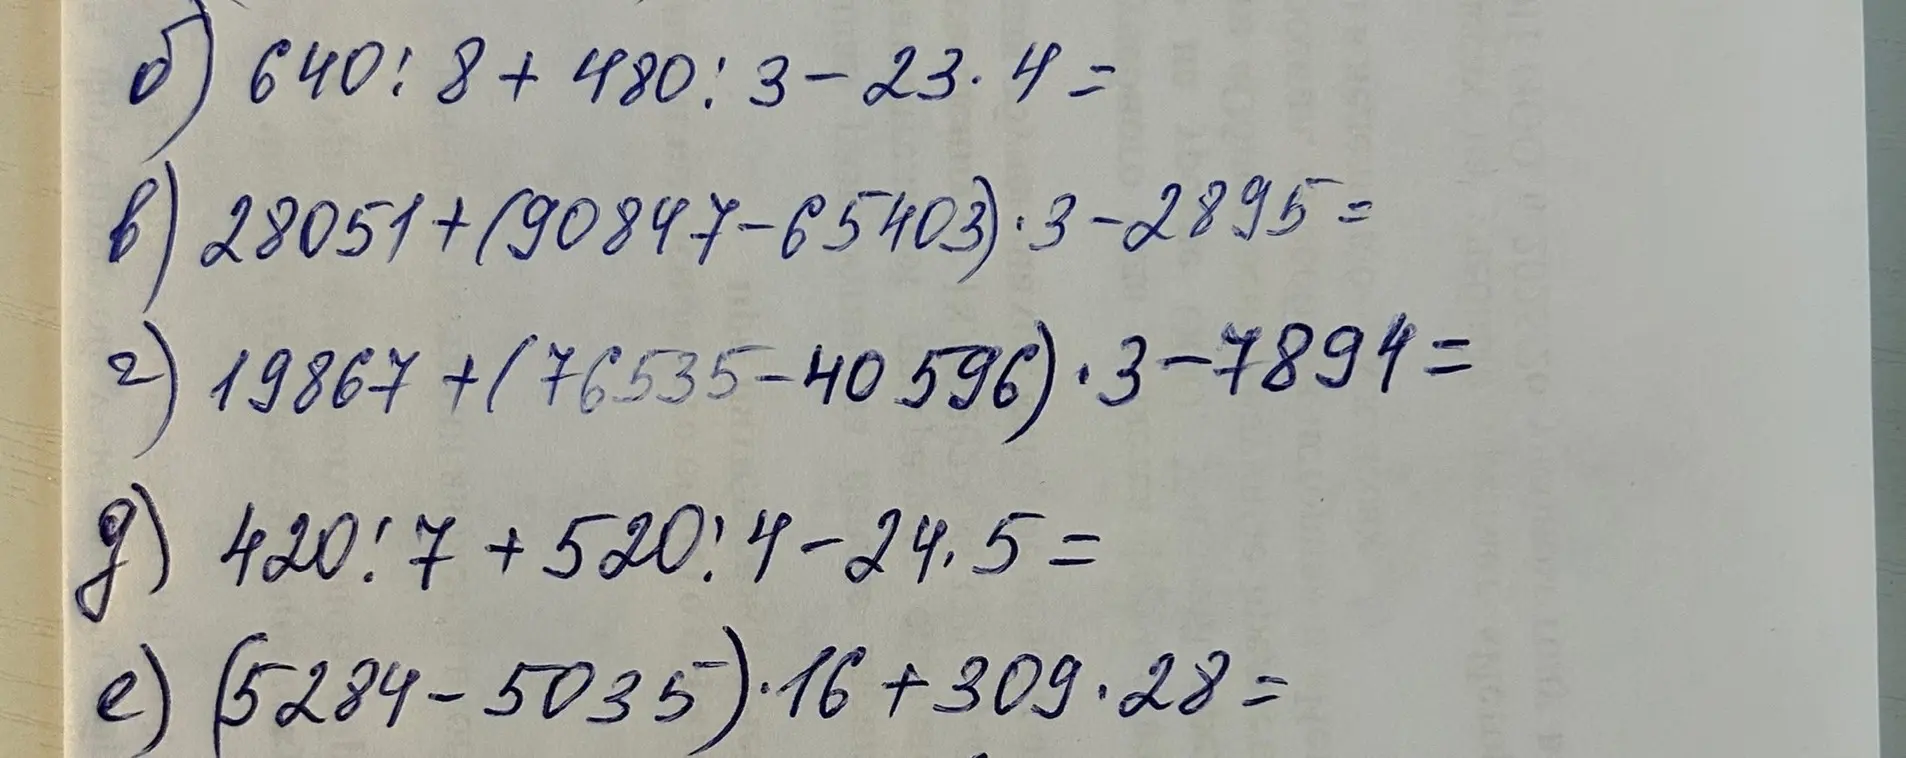 б) 640 : 8 + 480 : 3 - 23 · 4 =
в) 28051 + (90847 - 65403) · 3 - 2895 =
г) 19867 + (76535 - 40596) · 3 - 7894 =
д) 420 : 7 + 520 : 4 - 24 · 5 =
е) (5284 - 5035) · 16 + 309 · 28 =